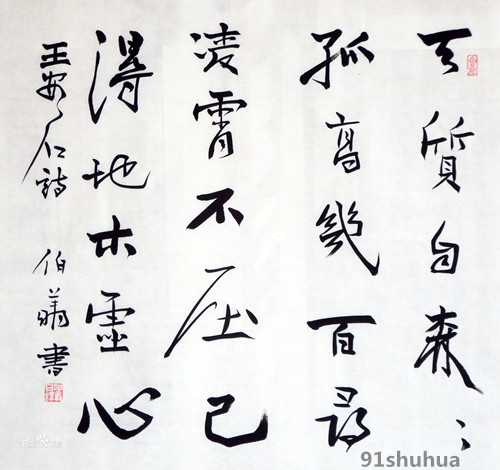 天質自森〻
孤高幾百尋
凌霄不屈己
得地本虛心
王安石詩 伯羲書
91shuhua